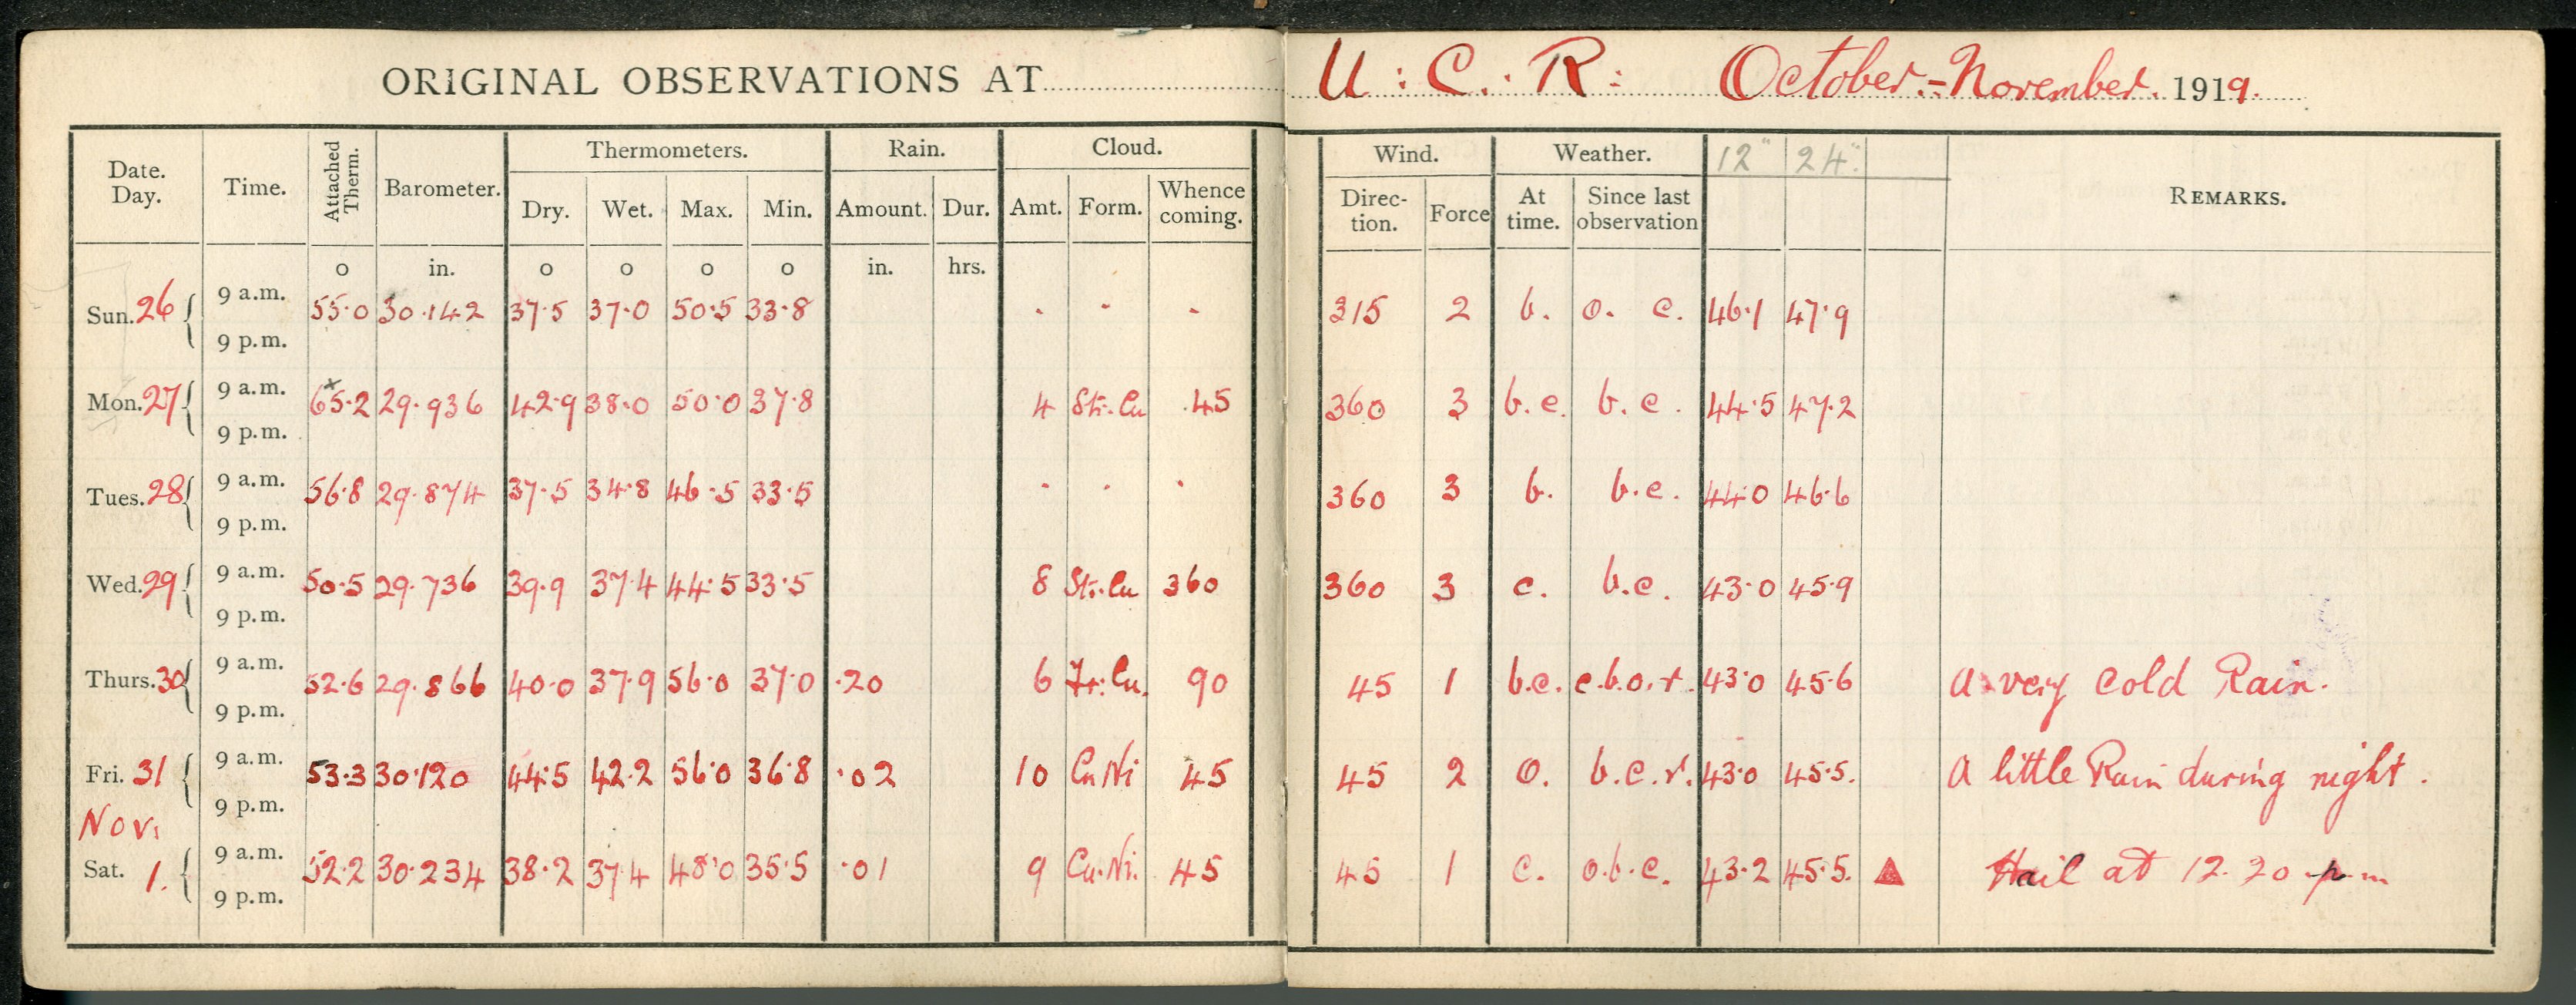 ORIGINAL OBSERVATIONS AT U : C. R : October.-November. 1919.
Date. Day. Time. Attached Therm. Barometer. Thermometers. Rain. Cloud. Wind. Weather. 12" 24". REMARKS.
Dry. Wet. Max. Min. Amount. Dur. Amt. Form. Whence coming. Direc- tion. Force At time. Since last observation
o in. o o o o in. hrs.
Sun. 26 { 9 a.m. 55.0 30.142 37.5 37.0 50.5 33.8 . - - 315 2 b. o. c. 46.1 47.9
9 p.m.
Mon. 27 { 9 a.m. 65.2 x 29.936 42.9 38.0 50.0 37.8 4 St.-Cu 45 360 3 b.c. b.c. 44.5 47.2
9 p.m.
Tues. 28 { 9 a.m. 56.8 29.874 37.5 34.8 46.5 33.5 . . . 360 3 b. b.c. 44.0 46.6
9 p.m.
Wed. 29 { 9 a.m. 50.5 29.736 39.9 37.4 44.5 33.5 8 St.-Cu 360 360 3 c. b.c. 43.0 45.9
9 p.m.
Thurs. 30 { 9 a.m. 52.6 29.866 40.0 37.9 56.0 37.0 .20 6 Fr.-Cu. 90 45 1 b.c. c.b.o.r. 43.0 45.6 A very cold Rain.
9 p.m.
Fri. 31 { 9 a.m. 53.3 30.120 44.5 42.2 56.0 36.8 .02 10 Cu Ni 45 45 2 o. b.c.r. 43.0 45.5. A little Rain during night.
9 p.m.
Nov.
Sat. 1. { 9 a.m. 52.2 30.234 38.2 37.4 48.0 35.5 .01 9 Cu.Ni. 45 45 1 c. o.b.c. 43.2 45.5. ▲ Hail at 12.20 p.m
9 p.m.